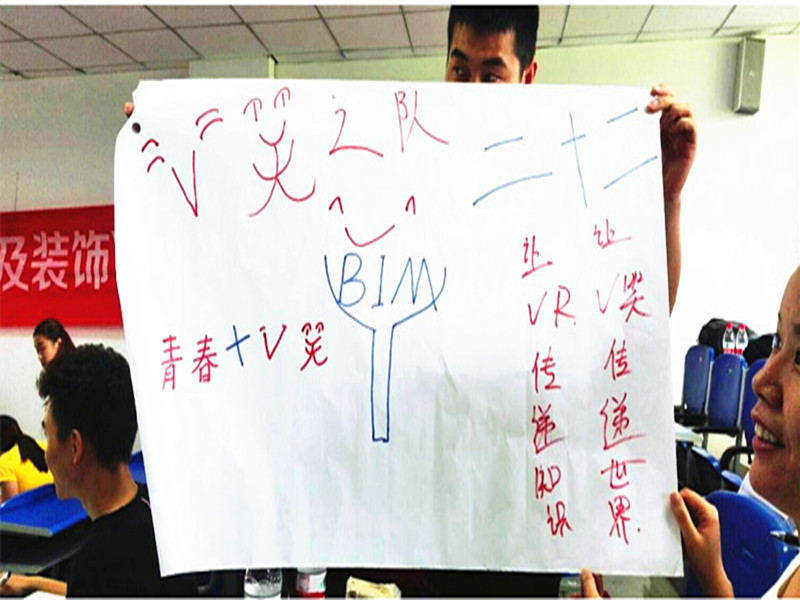 V笑之队
二十二
BIM
青春+V笑
让V笑传递世界
让VR传递知识
及装饰